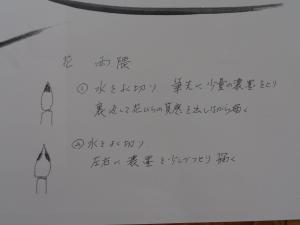 花 両隈
① 水をよく切り 筆先に少量の濃墨をとり
裏返して花びらの質感を出しながら描く
② 水をよく切り
左右に濃墨を少しづつとり描く